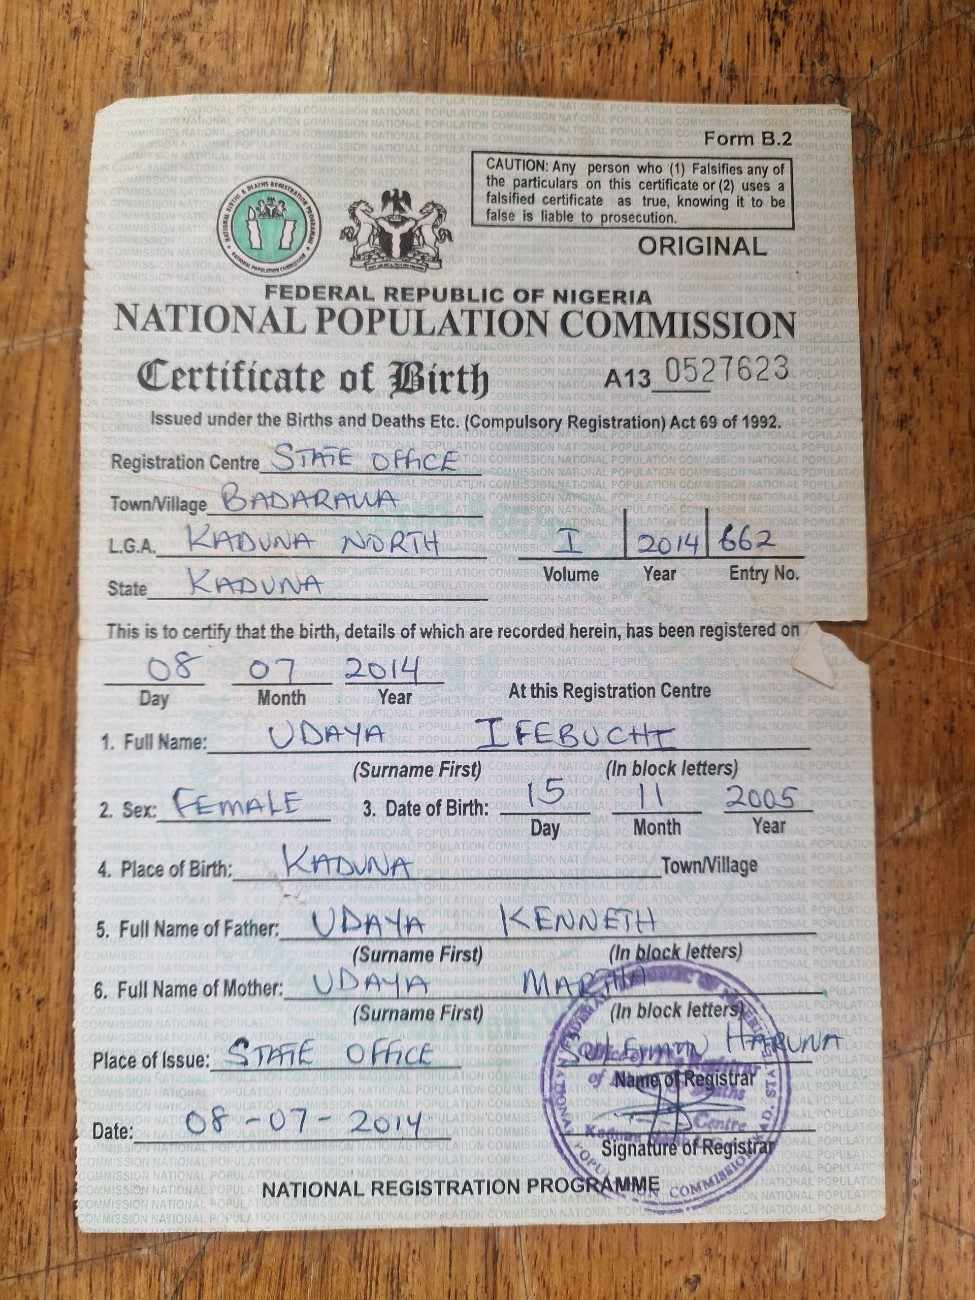 Form B.2
CAUTION: Any person who (1) Falsifies any of
the particulars on this certificate or (2) uses a
falsified certificate as true, knowing it to be
false is liable to prosecution.
ORIGINAL
NATIONAL BIRTHS & DEATHS REGISTRATION PROGRAMME
NATIONAL POPULATION COMMISSION
FEDERAL REPUBLIC OF NIGERIA
NATIONAL POPULATION COMMISSION
Certificate of Birth A13 0527623
Issued under the Births and Deaths Etc. (Compulsory Registration) Act 69 of 1992.
Registration Centre STATE OFFICE
Town/Village BADARAWA
L.G.A. KADUNA NORTH I 2014 662
Volume Year Entry No.
State KADUNA
This is to certify that the birth, details of which are recorded herein, has been registered on
08 07 2014
Day Month Year At this Registration Centre
1. Full Name: UDAYA IFEBUCHI
(Surname First) (In block letters)
2. Sex: FEMALE 3. Date of Birth: 15 11 2005
Day Month Year
4. Place of Birth: KADUNA Town/Village
5. Full Name of Father: UDAYA KENNETH
(Surname First) (In block letters)
6. Full Name of Mother: UDAYA MARTHA
(Surname First) (In block letters)
Place of Issue: STATE OFFICE SULEIMAN HARUNA
Name of Registrar
Date: 08-07-2014
Signature of Registrar
NATIONAL REGISTRATION PROGRAMME